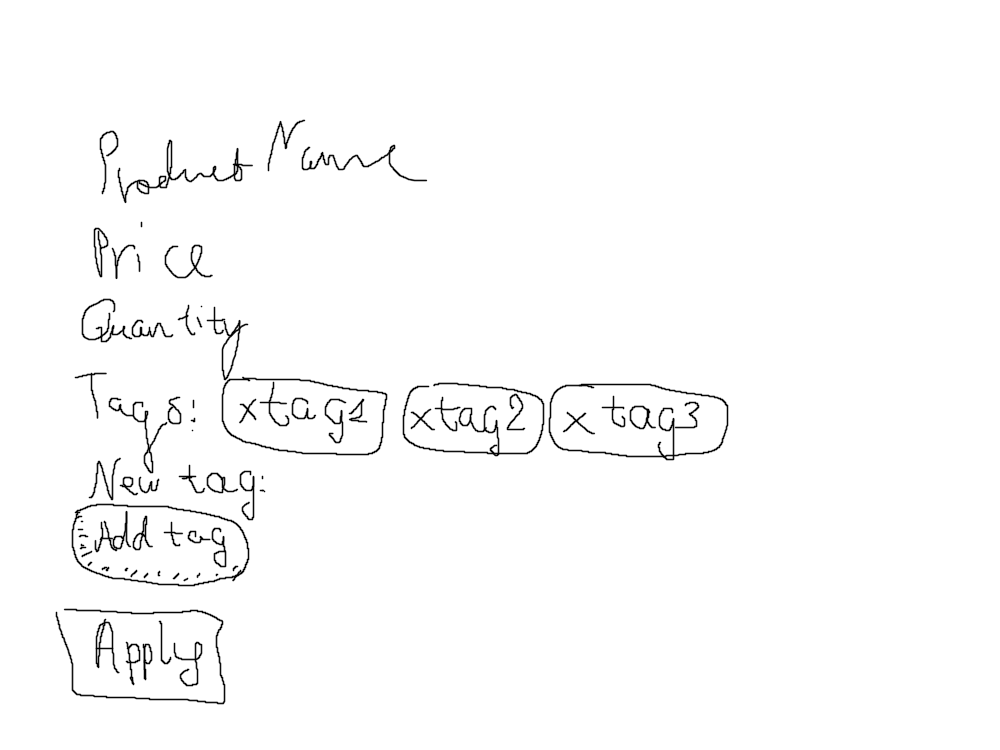 Product Name
Price
Quantity
Tags: x tag1 x tag2 x tag3
New tag:
Add tag
Apply